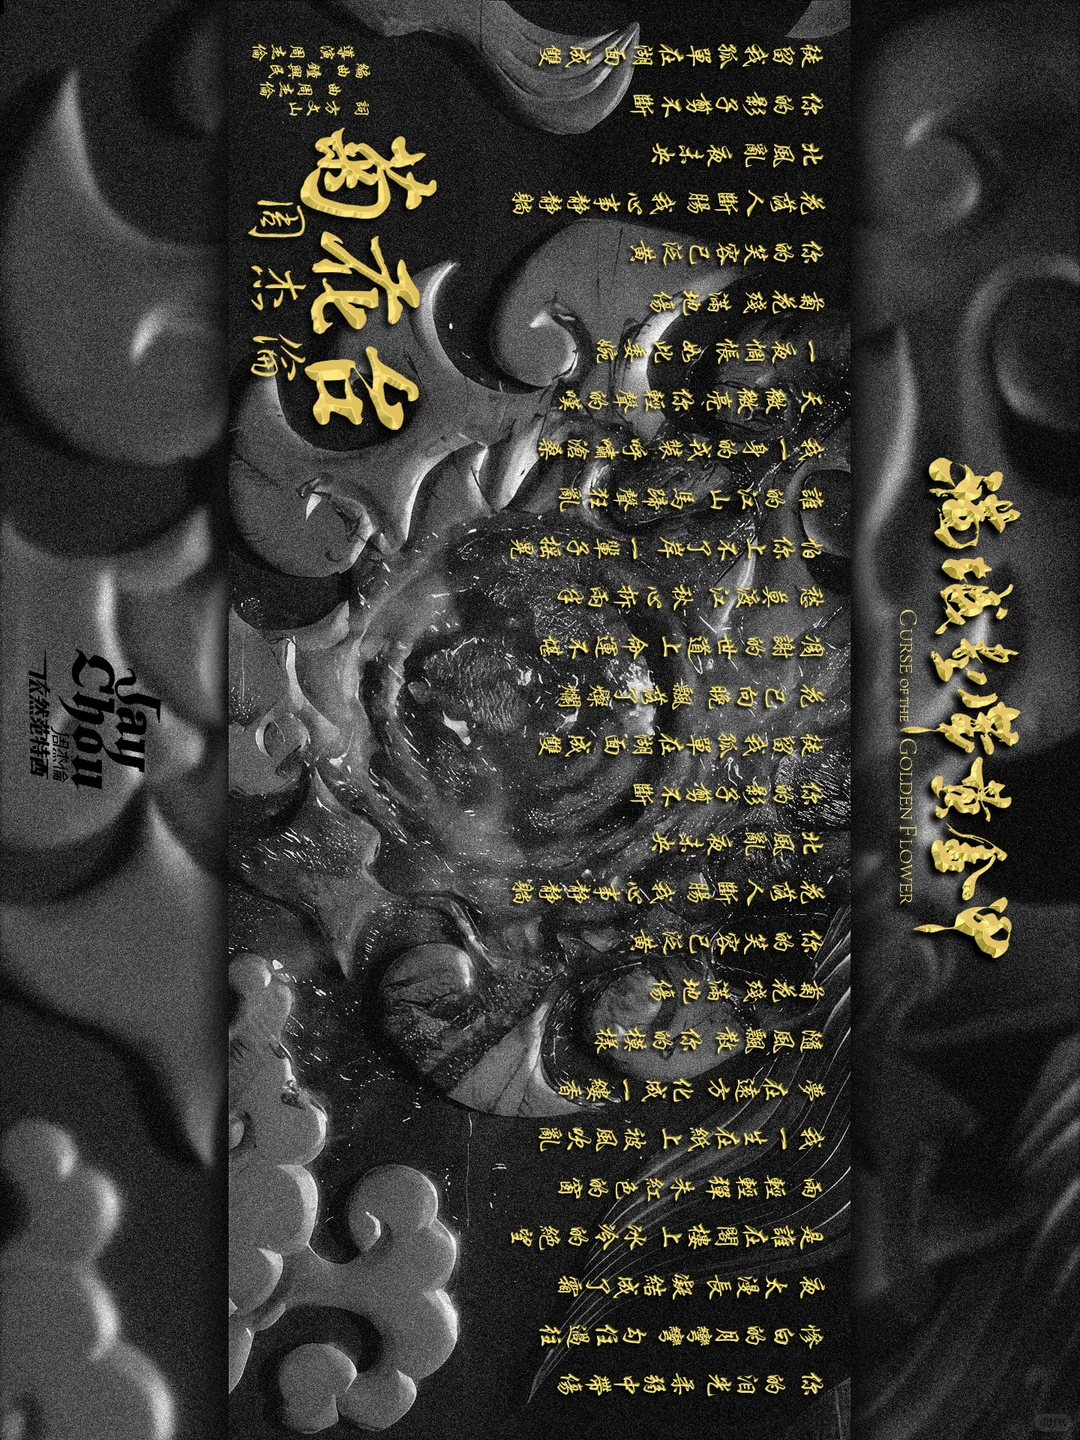 滿城盡帶黃金甲
CURSE OF THE GOLDEN FLOWER
你的泪光柔弱中帶傷
慘白的月彎彎勾住過往
夜太漫長凝結成了霜
是誰在閣樓上冰冷的絕望
雨輕輕彈朱紅色的窗
我一生在紙上被風吹亂
夢在遠方化成一縷香
隨風飄散你的模樣
菊花殘滿地傷
你的笑容已泛黃
花落人斷腸我心事静静躺
北風亂夜未央
你的影子剪不斷
徒留我孤單在湖面成雙
花已向晚飄落了燦爛
凋謝的世道上命運不堪
愁莫渡江秋心拆兩半
怕你上不了岸一輩子搖晃
誰的江山馬蹄聲狂亂
我一身的戎裝呼嘯滄桑
天微微亮你輕聲的嘆
一夜惆悵如此委婉
菊花殘滿地傷
你的笑容已泛黃
花落人斷腸我心事静静躺
北風亂夜未央
你的影子剪不斷
徒留我孤單在湖面成雙
菊花台
周杰倫
詞 方文山
曲 周杰倫
編曲 鍾興民
導演 周杰倫
Jay
Chou
周杰倫
依然范特西